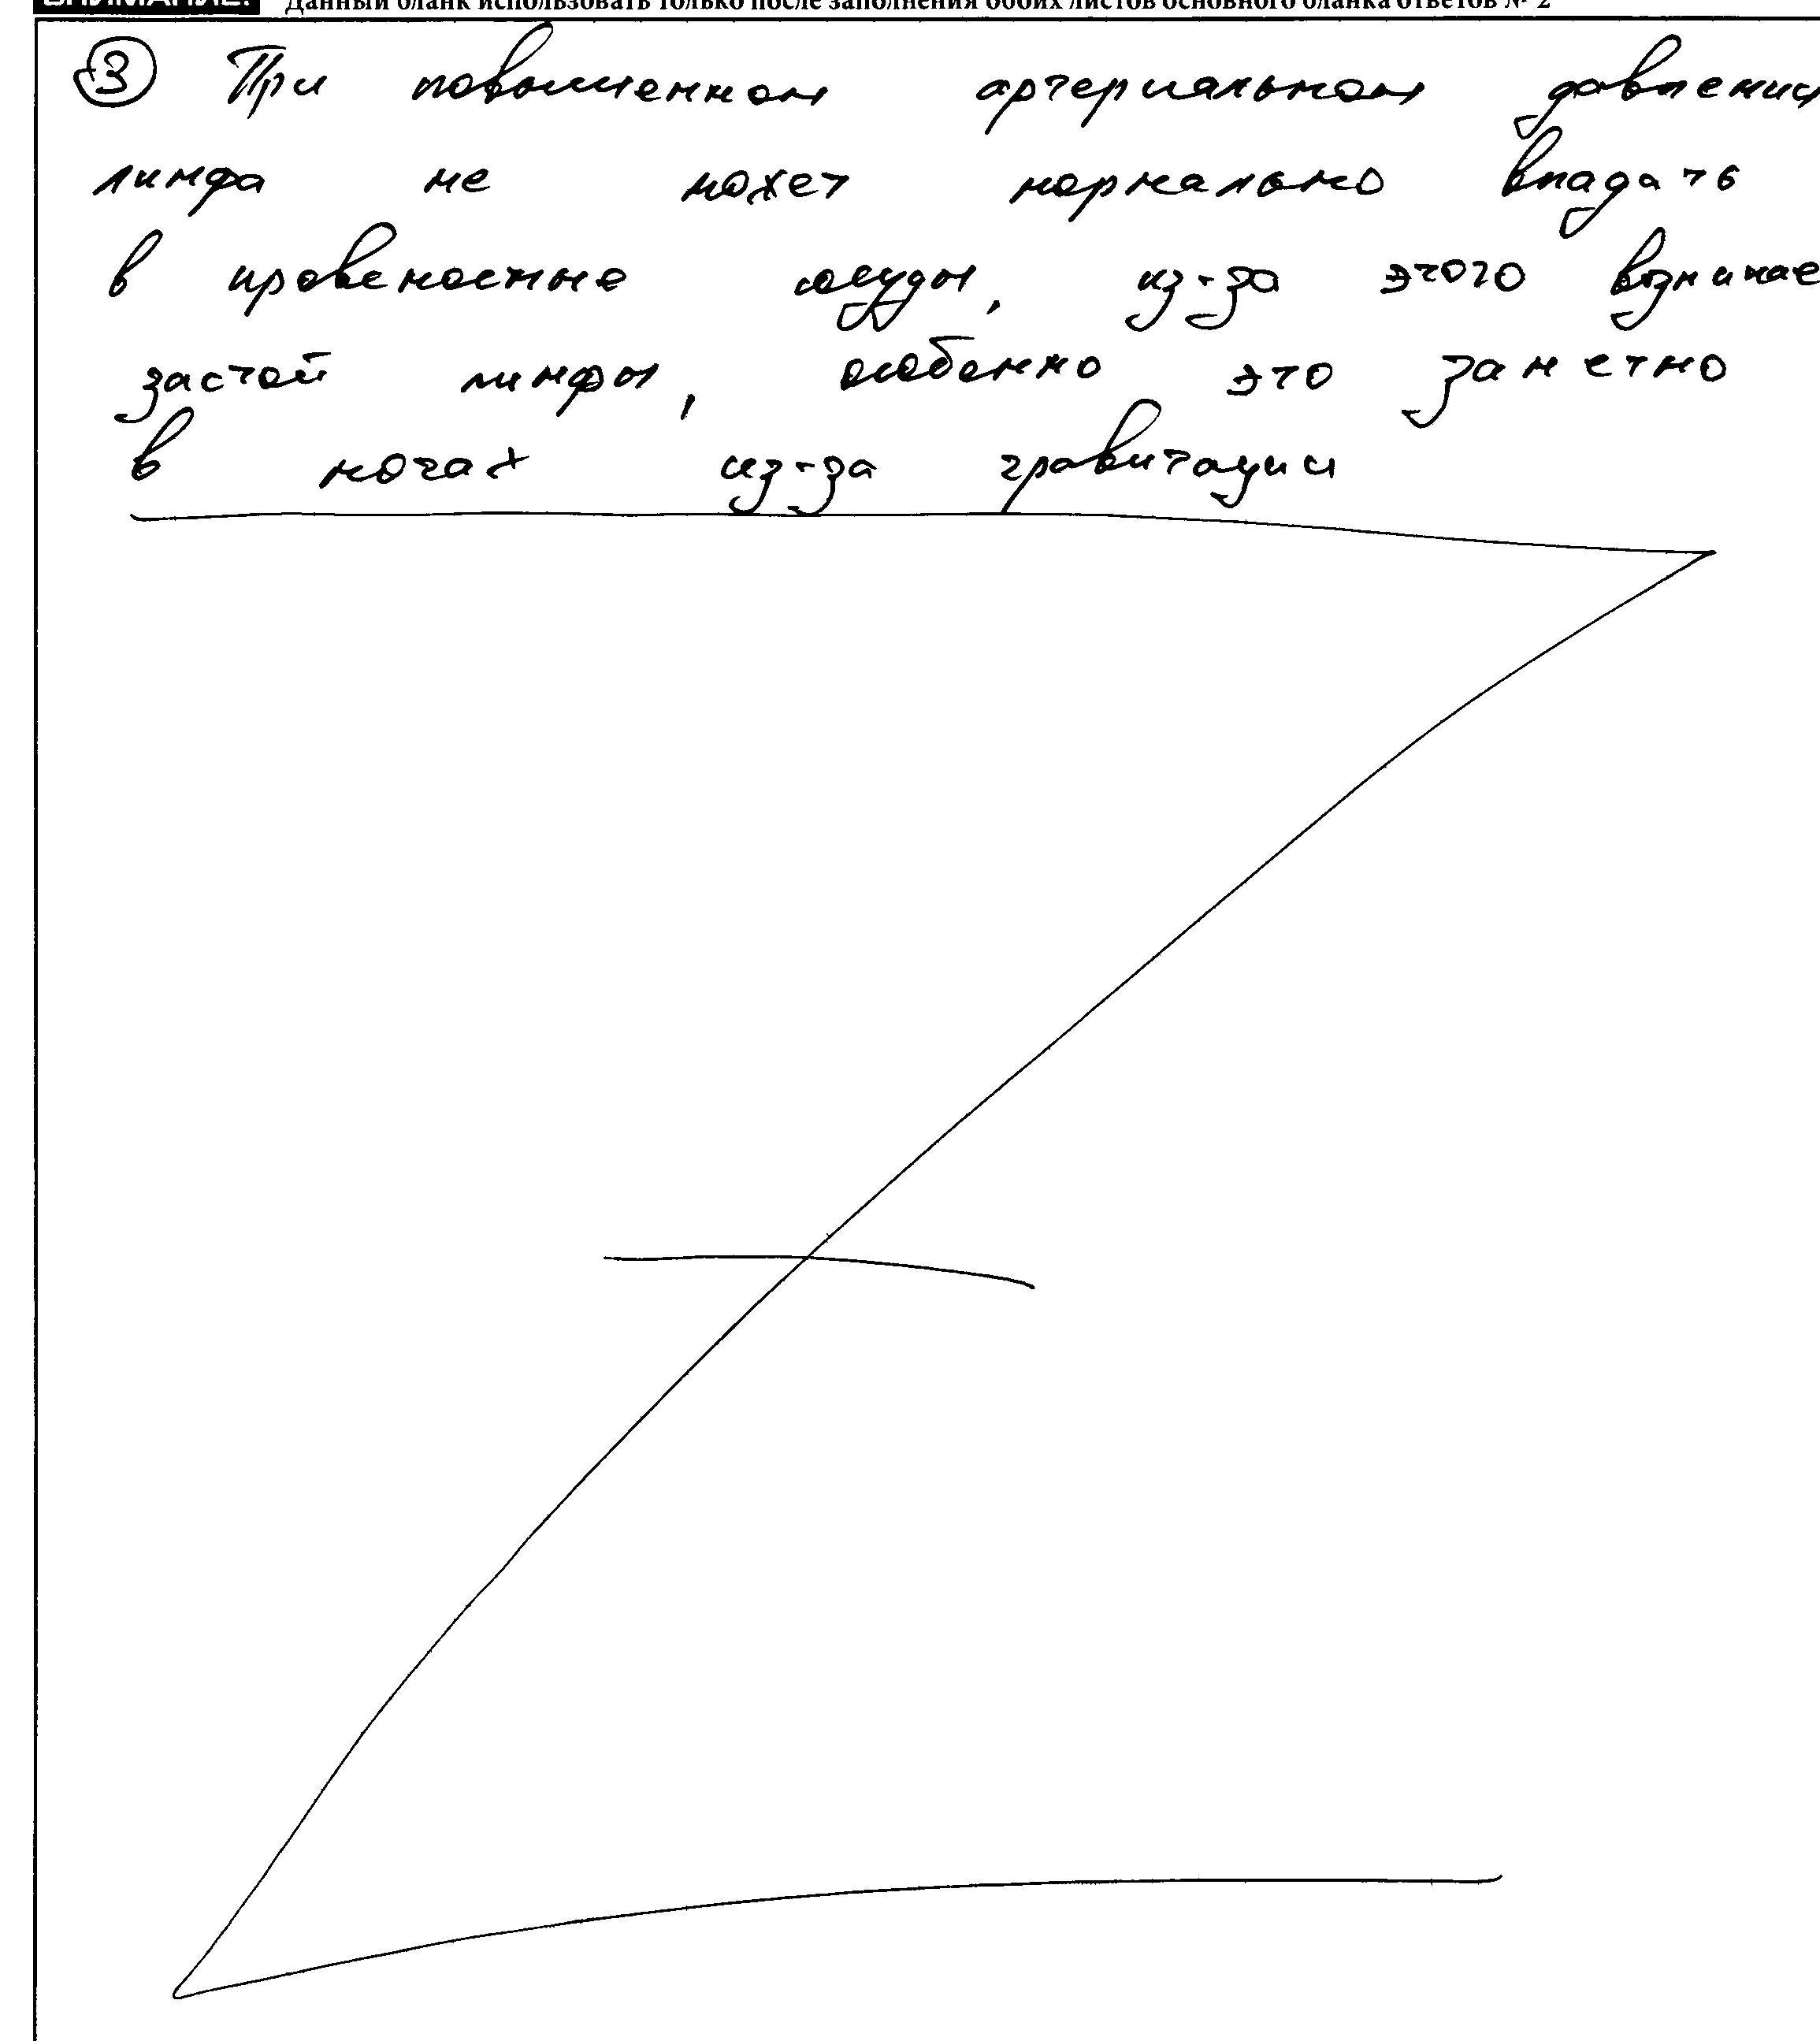 ВНИМАНИЕ! Данный бланк использовать только после заполнения обоих листов основного бланка ответов № 2
③ При повышенном артериальном давлении
лимфа не может нормально впадать
в кровеностные сосуды, из-за этого возникае
застой лимфы, особенно это заметно
в ногах из-за гравитации